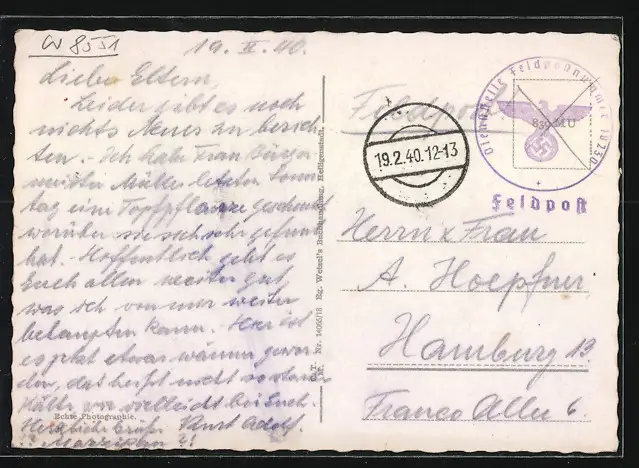 W 8551
19. II. 40.
Liebe Eltern,
Leider gibt es noch
nichts Neues zu berich-
ten. - Ich habe Frau Bürger-
meister Müller letzten Sonn-
tag eine Topfpflanze geschenkt
worüber sie sich sehr gefreut
hat. Hoffentlich geht es
Euch allen weiter gut
was ich von mir weiter
behaupten kann. Hier ist
es jetzt etwas wärmer gewor-
den, das heißt nicht so starke
Kälte wie vielleicht bei Euch.
Herzliche Grüße Kurt Adolf.
?? Marzipan ?!
Echte Photographie.
Nr. 14066/18 Eg. Wetzel's Buchhandlung, Heiligenstadt.
Feldpost
19.2.40.12-13
Dienststelle Feldpostnummer 18230
839 MU
Feldpost
Herrn u. Frau
A. Hoepfner,
Hamburg 13.
Franco Allee 6.